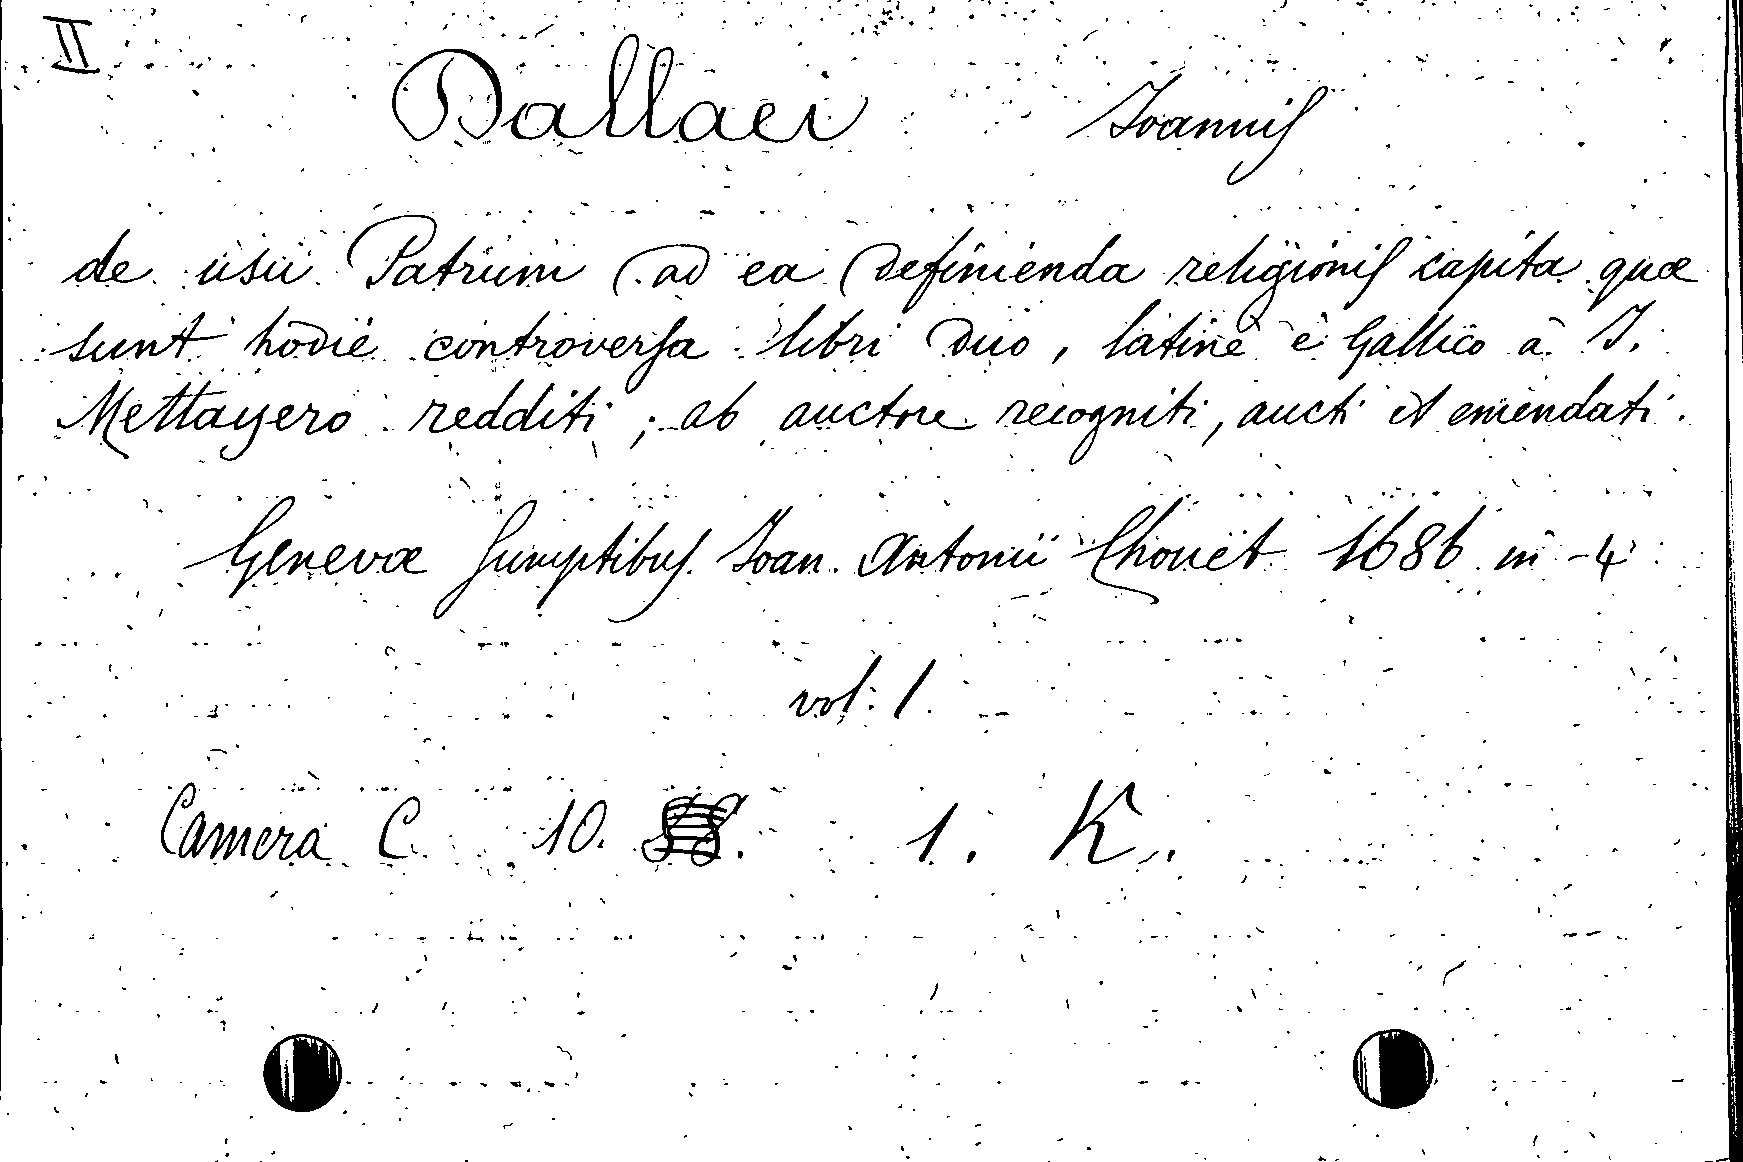 II
Dallaei Joannis
de usu Patrum ad ea definienda religionis capita quæ
sunt hodie controversa libri duo, latinè è Gallico à J.
Mettayero redditi; ab auctore recogniti, aucti et emendati.
Genevæ sumptibus Joan. Antonii Chouët 1686 in-4
vol: 1.
Camera C. 10. 1. K.